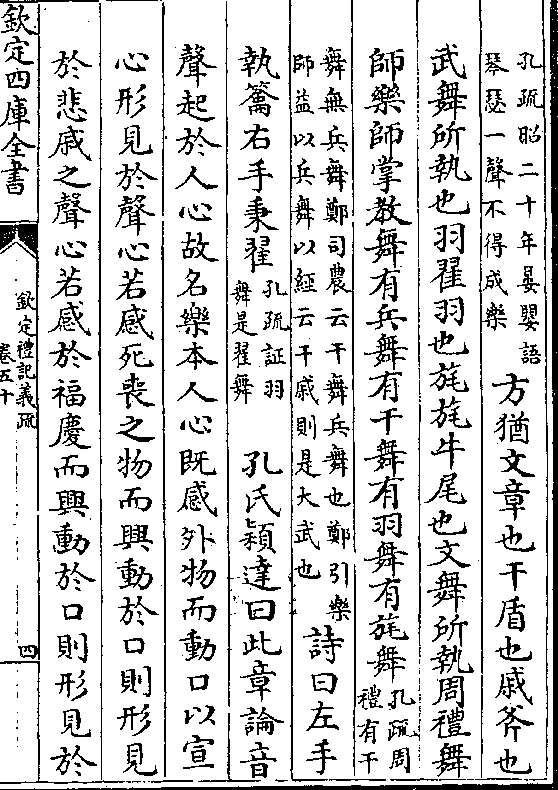 孔疏昭二十年晏嬰語
琴瑟一聲不得成樂
方猶文章也干盾也戚斧也
武舞所執也羽翟羽也旄旄牛尾也文舞所執周禮舞
師樂師掌教舞有兵舞有干舞有羽舞有旄舞
孔疏周
禮有干
舞無兵舞鄭司農云干舞兵舞也鄭引樂
師益以兵舞以經云干戚則是大武也
詩曰左手
執籥右手秉翟
孔疏証羽
舞是翟舞
孔氏穎達曰此章論音
聲起於人心故名樂本人心既感外物而動口以宣
心形見於聲心若感死喪之物而興動於口則形見
於悲戚之聲心若感於福慶而興動於口則形見於
欽定四庫全書
欽定禮記義疏
卷五十
四